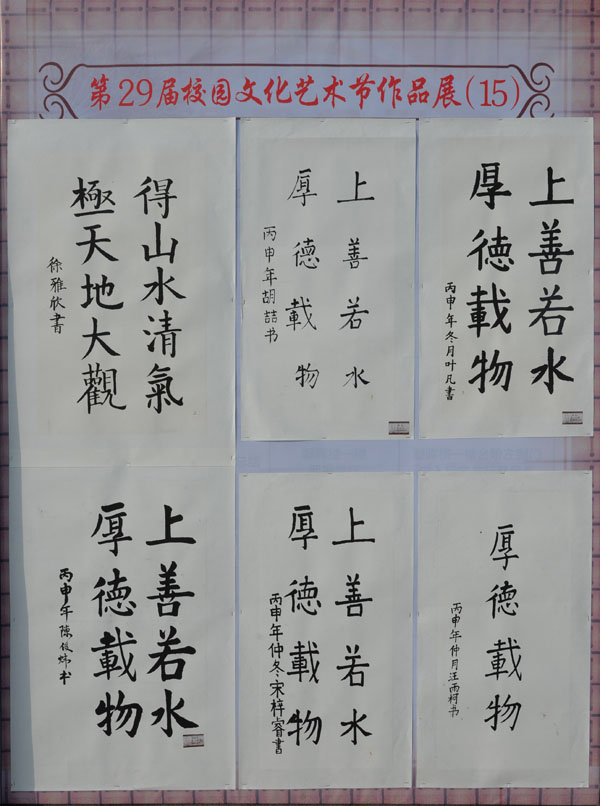 第29届校园文化艺术节作品展(15)
得山水清氣
極天地大觀
徐雅欣書
上善若水
厚德載物
丙申年胡喆书
上善若水
厚德載物
丙申年冬月叶凡書
上善若水
厚德載物
丙申年陈俊炜书
上善若水
厚德載物
丙申年仲冬宋梓睿書
厚德載物
丙申年仲月汪雨柯书